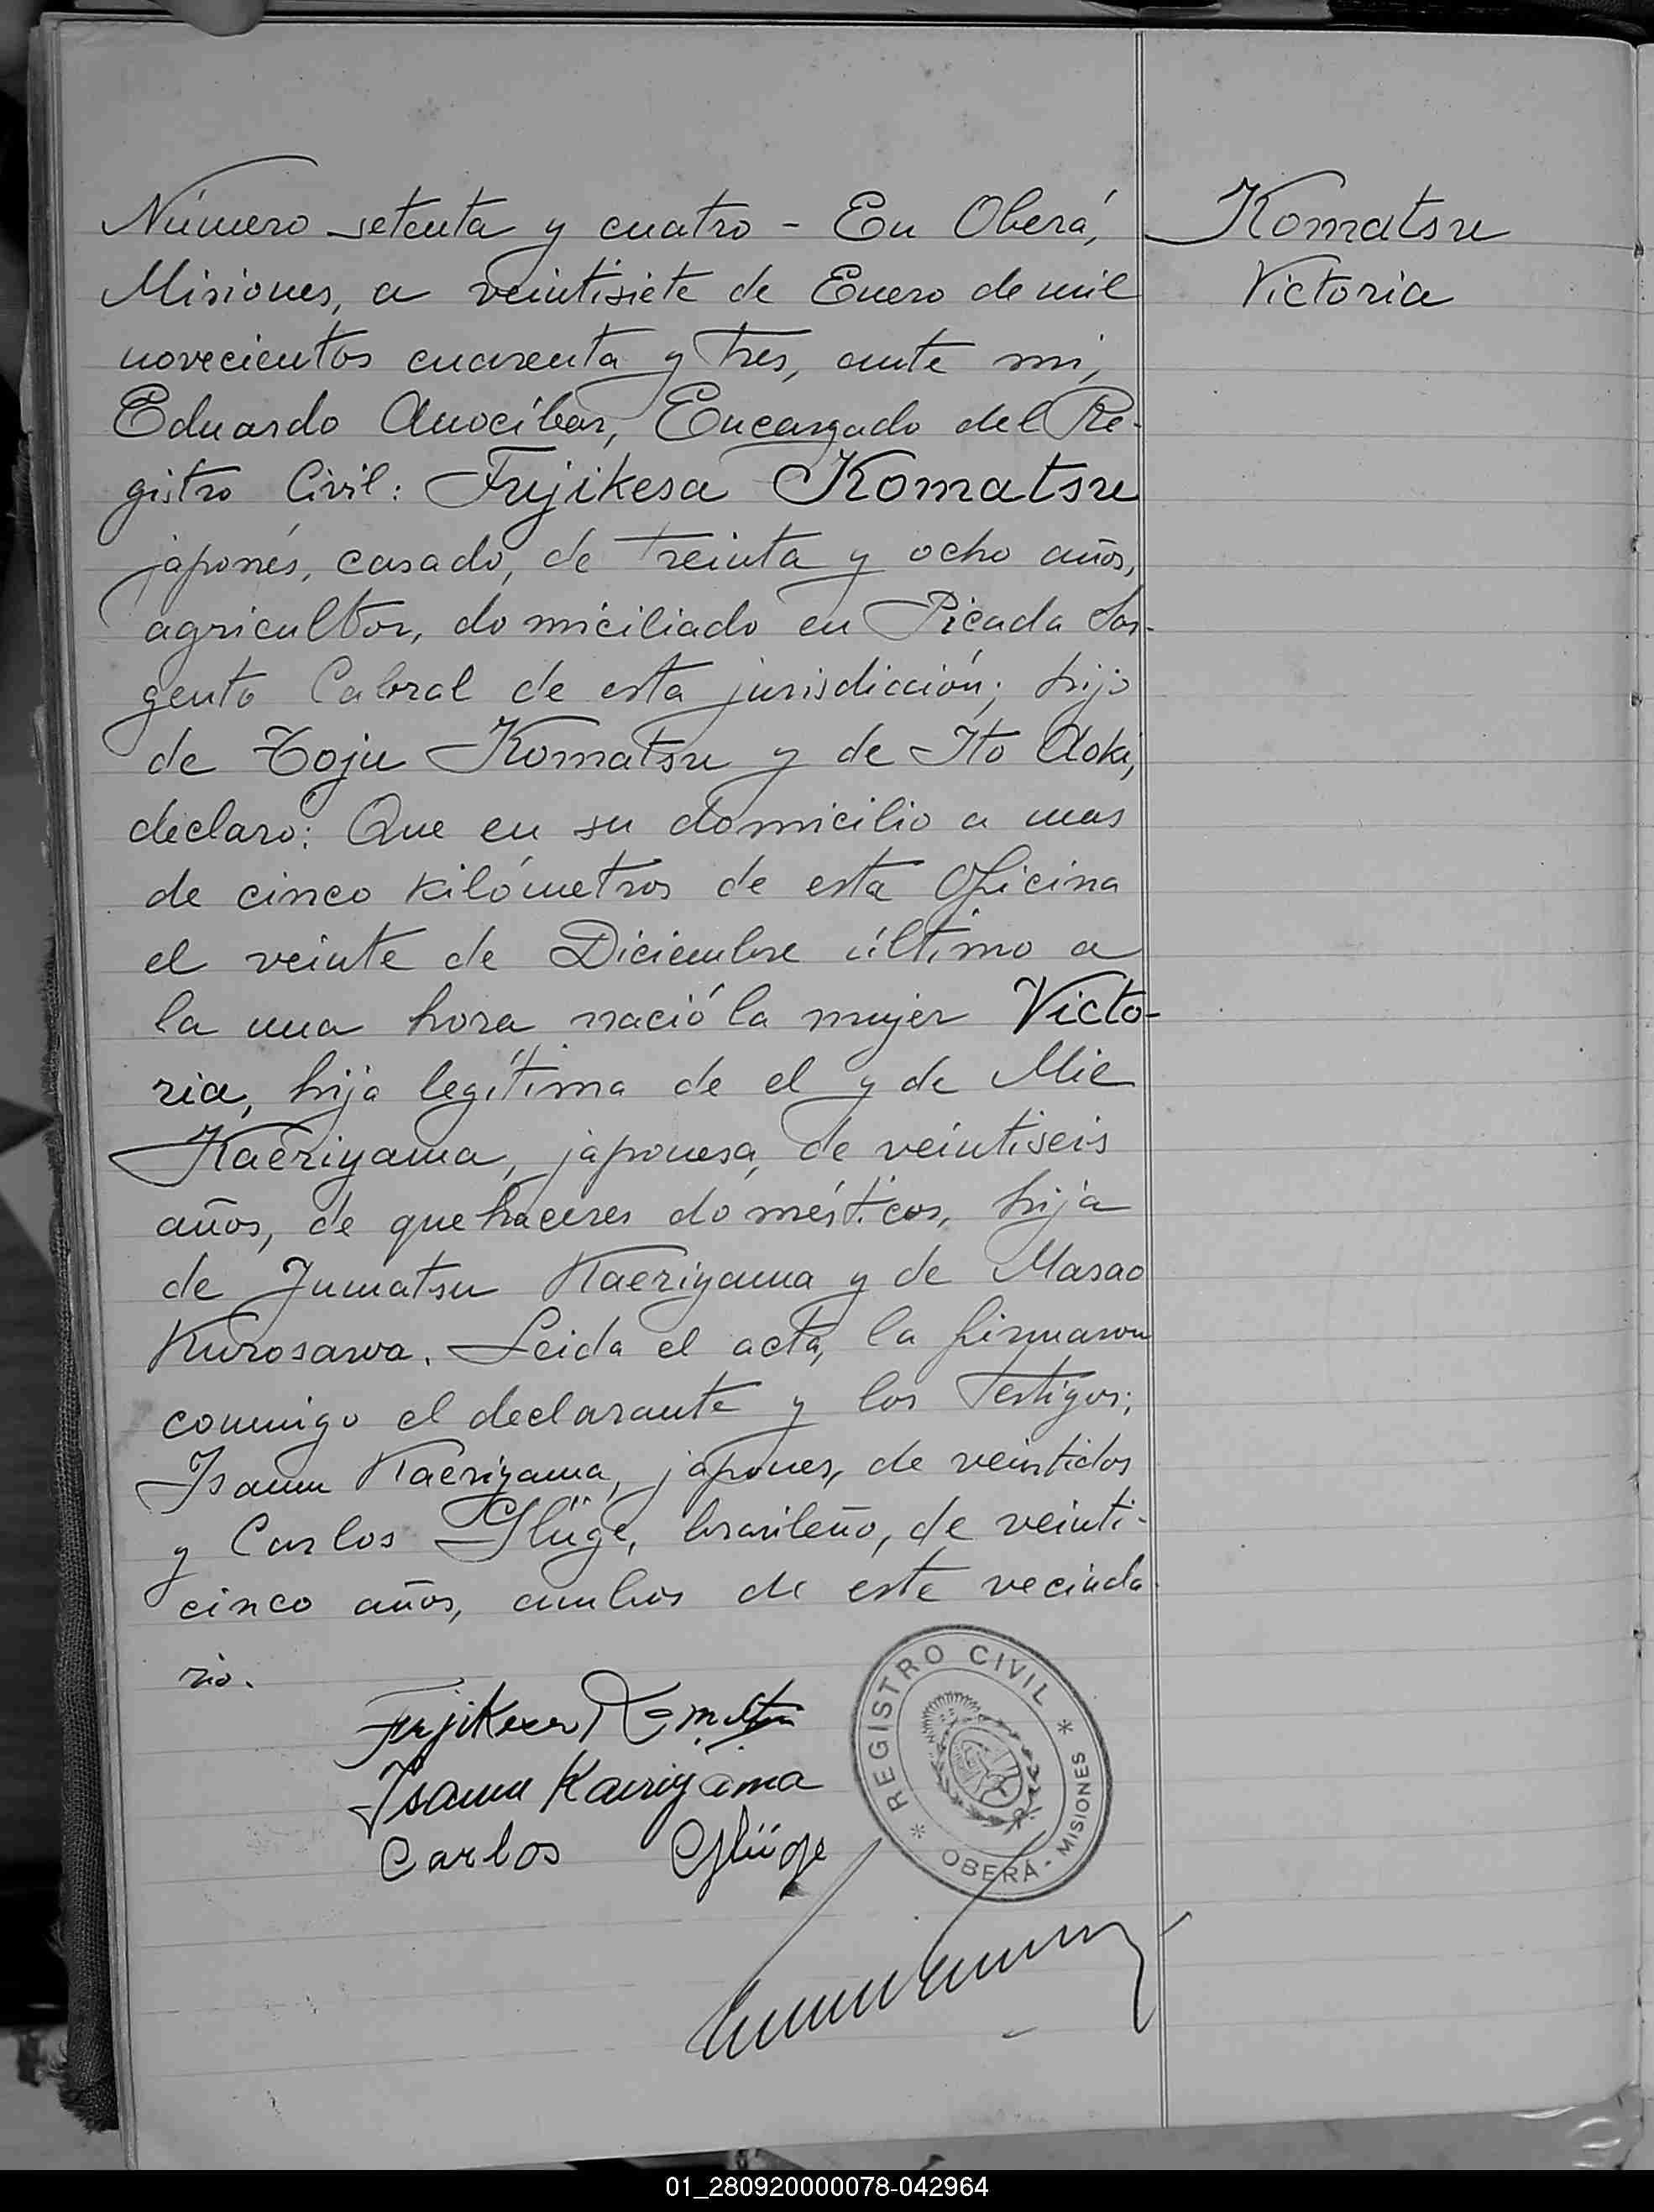 Número setenta y cuatro - En Oberá,
Komatsu
Misiones, a veintisiete de Enero de mil
Victoria
novecientos cuarenta y tres, ante mi,
Eduardo Anocíbar, Encargado del Re-
gistro Civil: Fujikesa Komatsu
japonés, casado, de treinta y ocho años,
agricultor, domiciliado en Picada Sar-
gento Cabral de esta jurisdicción; hijo
de Toju Komatsu y de Ito Aoki,
declaro: Que en su domicilio a mas
de cinco kilómetros de esta Oficina
el veinte de Diciembre último a
la una hora nació la mujer Victo-
ria, hija legítima de el y de Mie
Kaeriyama, japonesa, de veintiseis
años, de quehaceres domésticos, hija
de Jumatsu Kaeriyama y de Masao
Kurosawa. Leida el acta, la firmaron
conmigo el declarante y los testigos;
Isamu Kaeriyama, japones, de veintidos
y Carlos Glüge, brasileño, de veinti-
cinco años, ambos de este vecinda-
rio.
Fujikesa Komatsu
Isamu Kaeriyama
Carlos Glüge
* REGISTRO CIVIL *
OBERÁ - MISIONES
01_280920000078-042964